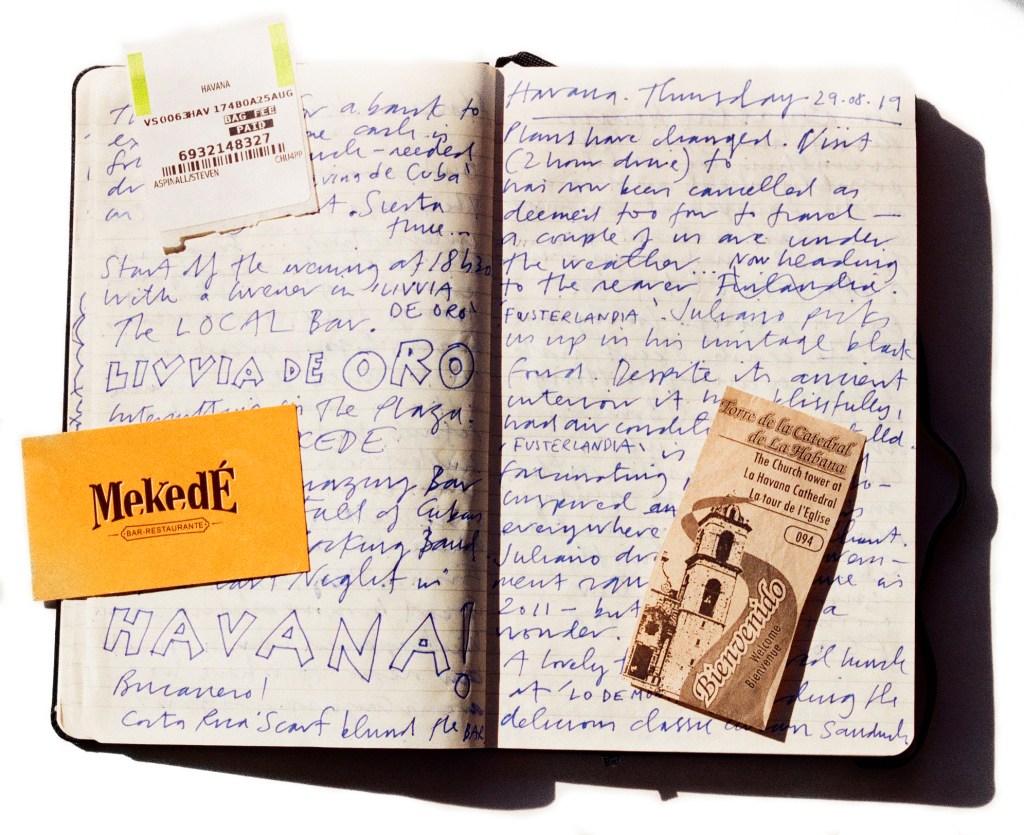 HAVANA
VS0063HAV 174B0A25AUG
BAG FEE
PAID
6932148327
CHU4PP
ASPINALL/STEVEN
for a bank to
cash is
much-needed
de Cuba'
Siesta
time...
Start off the evening at 18h30
with a livener in 'LIVVIA
DE ORO'
The LOCAL Bar.
LIVVIA DE ORO
in the Plaza.
MekedÉ
BAR-RESTAURANTE
Amazing Bar
full of Cuban
Band
Last Night in
HAVANA!
Bucanero!
Costa Rica 'Scarf blund the BAR
Havana. Thursday 29.08.19
Plans have changed. Visit
(2 hour drive) to
has now been cancelled as
deemed too far to travel —
a couple of us are under
the weather... Now heading
to the nearer Finlandia.
'FUSTERLANDIA'. Juliano picks
us up in his vintage black
Ford. Despite its ancient
interior it blissfully,
had air
'FUSTERLANDIA' is
fascinating
inspired
everywhere
Juliano
ment
2011 – but a
wonder.
A lovely lunch
at 'LO DE the
delicious classic Cuban Sandwich
Torre de la Catedral
de La Habana
The Church tower at
La Havana Cathedral
La tour de l'Eglise
094
Bienvenido
Welcome
Bienvenue